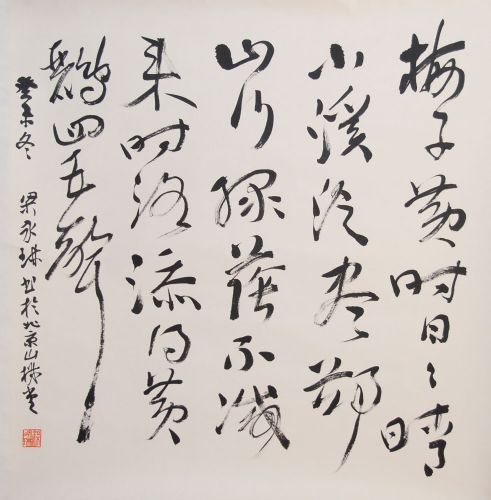 梅子黄时日日晴
小溪泛尽却
山行绿荫不减
来时路添得黄
鹂四五声
癸未冬 梁永琳书於北京山樵堂